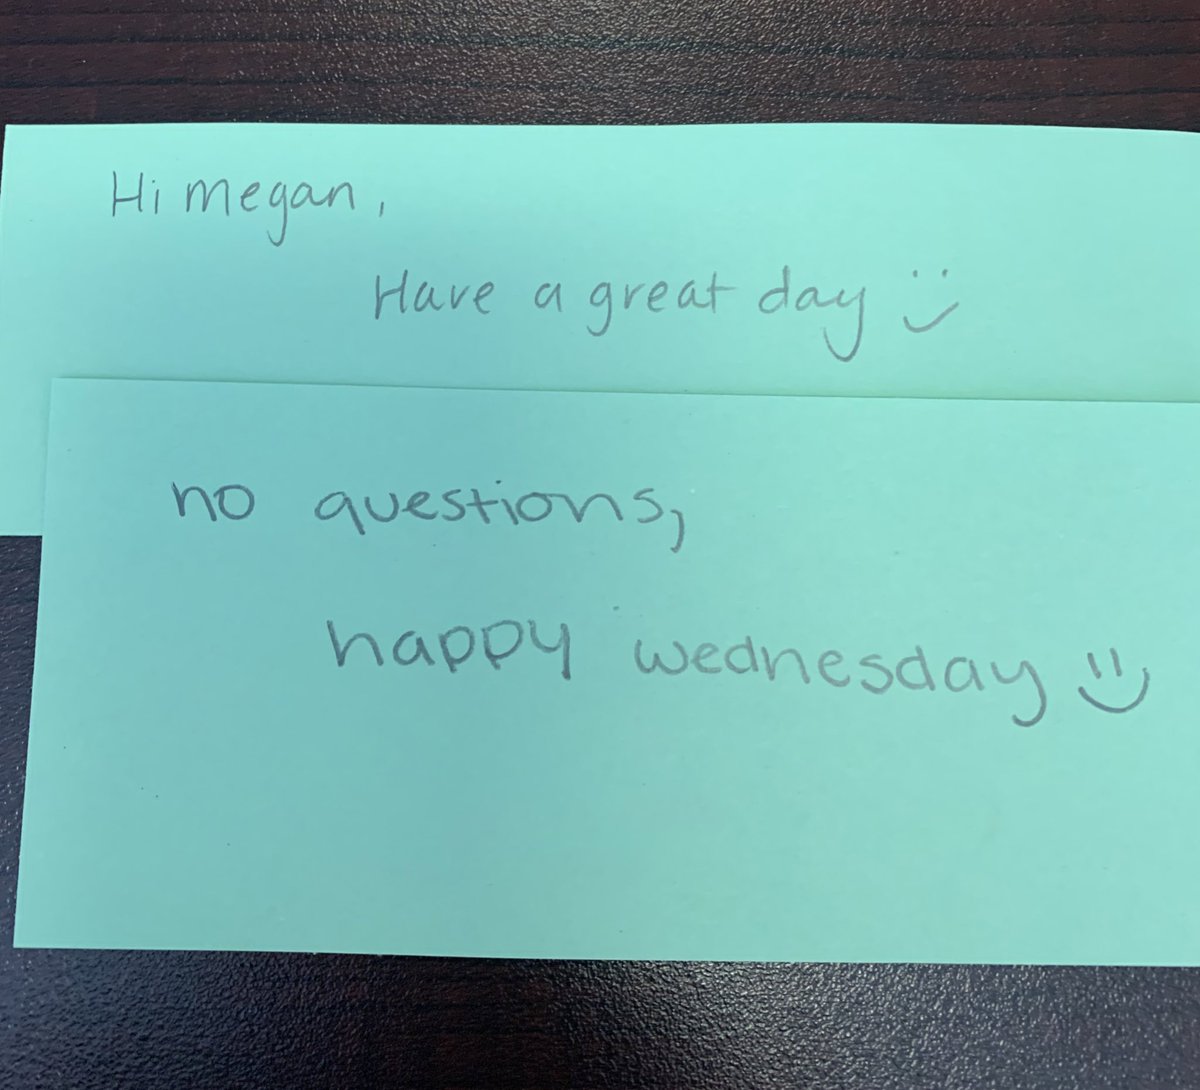 Hi megan,
Have a great day
no questions,
happy wednesday